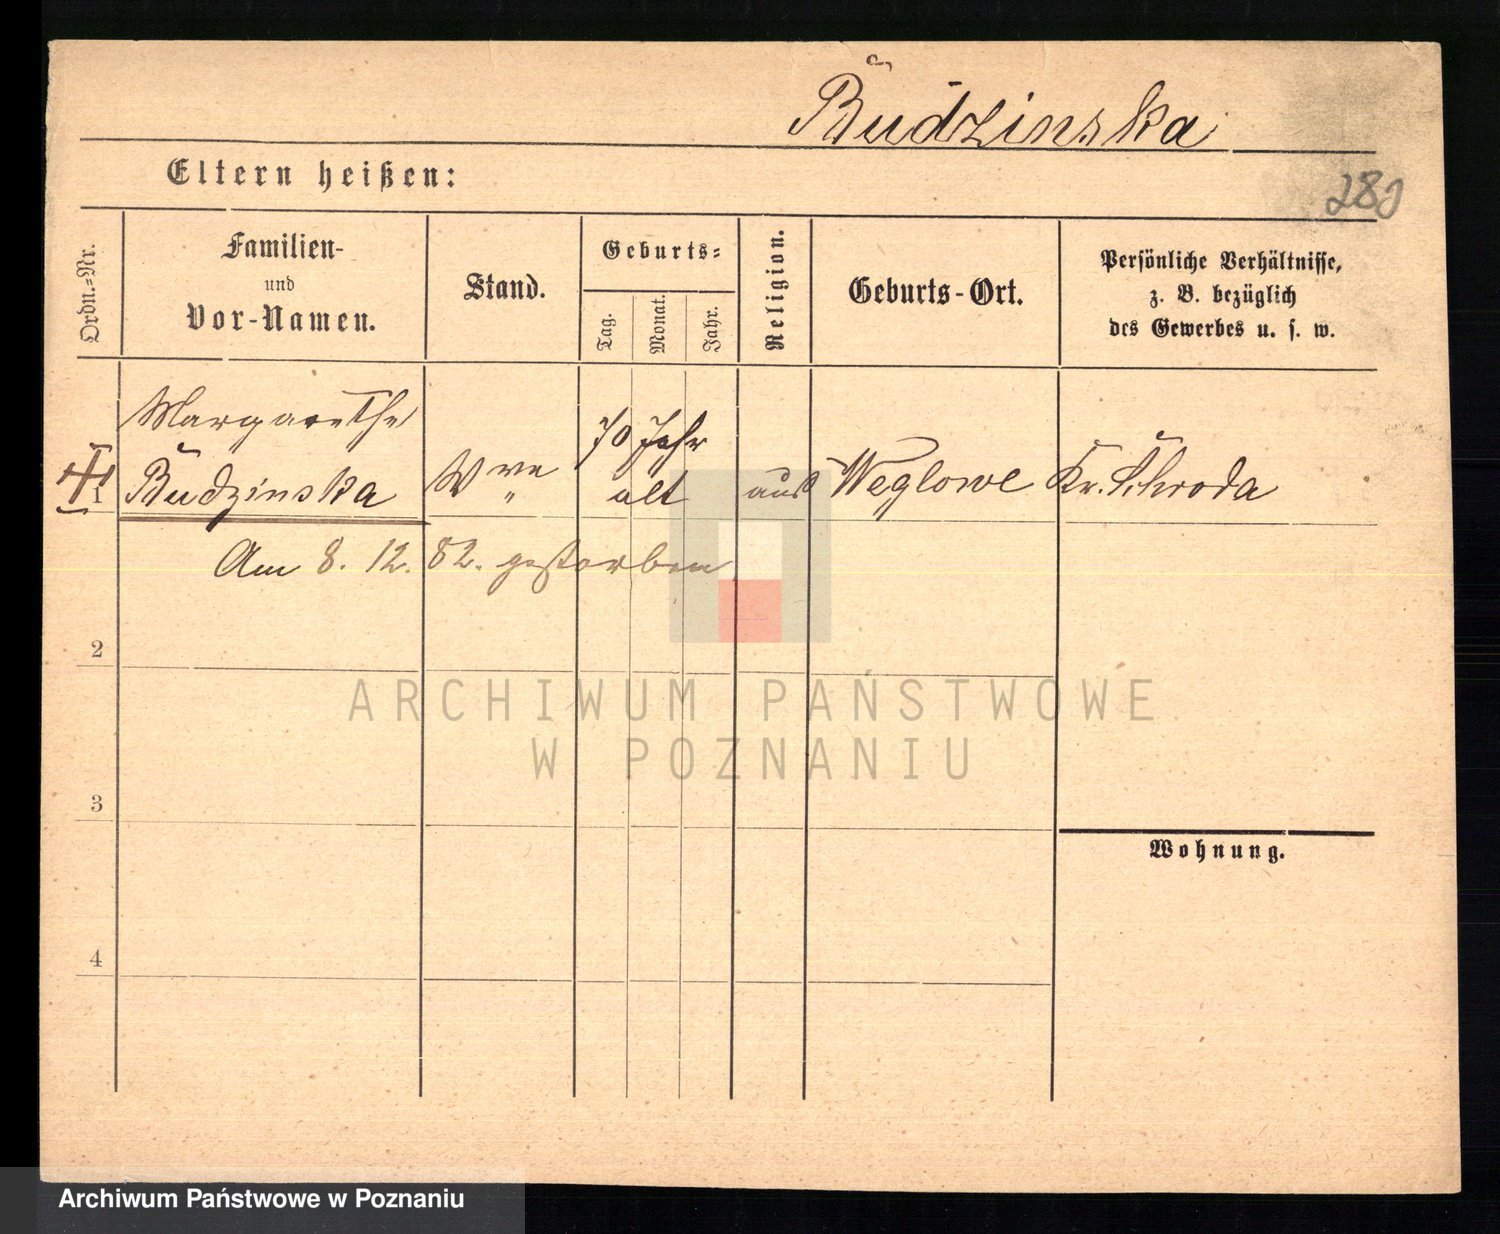 Budzinska
Eltern heißen:
280
Ordn.-Nr.
Familien-
und
Vor-Namen.
Stand.
Geburts-
Tag.
Monat.
Jahr.
Religion.
Geburts-Ort.
Persönliche Verhältnisse,
z. B. bezüglich
des Gewerbes u. s. w.
Margarethe 70 Jahr
1 Budzinska Wwe alt aus Weglowe Kr. Schroda
Am 8. 12. 82. gestorben
2
ARCHIWUM PAŃSTWOWE
W POZNANIU
3
Wohnung.
4
Archiwum Państwowe w Poznaniu